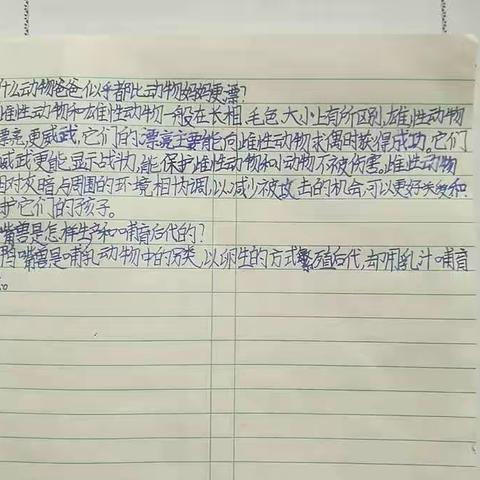 什么动物爸爸似乎都比动物妈妈更漂?
雌性动物和雄性动物一般在长相,毛色,大小上有所区别,雄性动物
漂亮,更威武,它们的漂亮主要能向雌性动物求偶时获得成功。它们
威武更能显示战斗力,能保护雌性动物和小动物不被伤害。雌性动物
相对灰暗与周围的环境相协调,以减少被攻击的机会,可以更好关爱和
护它们的孩子。
嘴兽是怎样生产和哺育后代的?
鸭嘴兽是哺乳动物中的另类,以卵生的方式繁殖后代,却用乳汁哺育
。